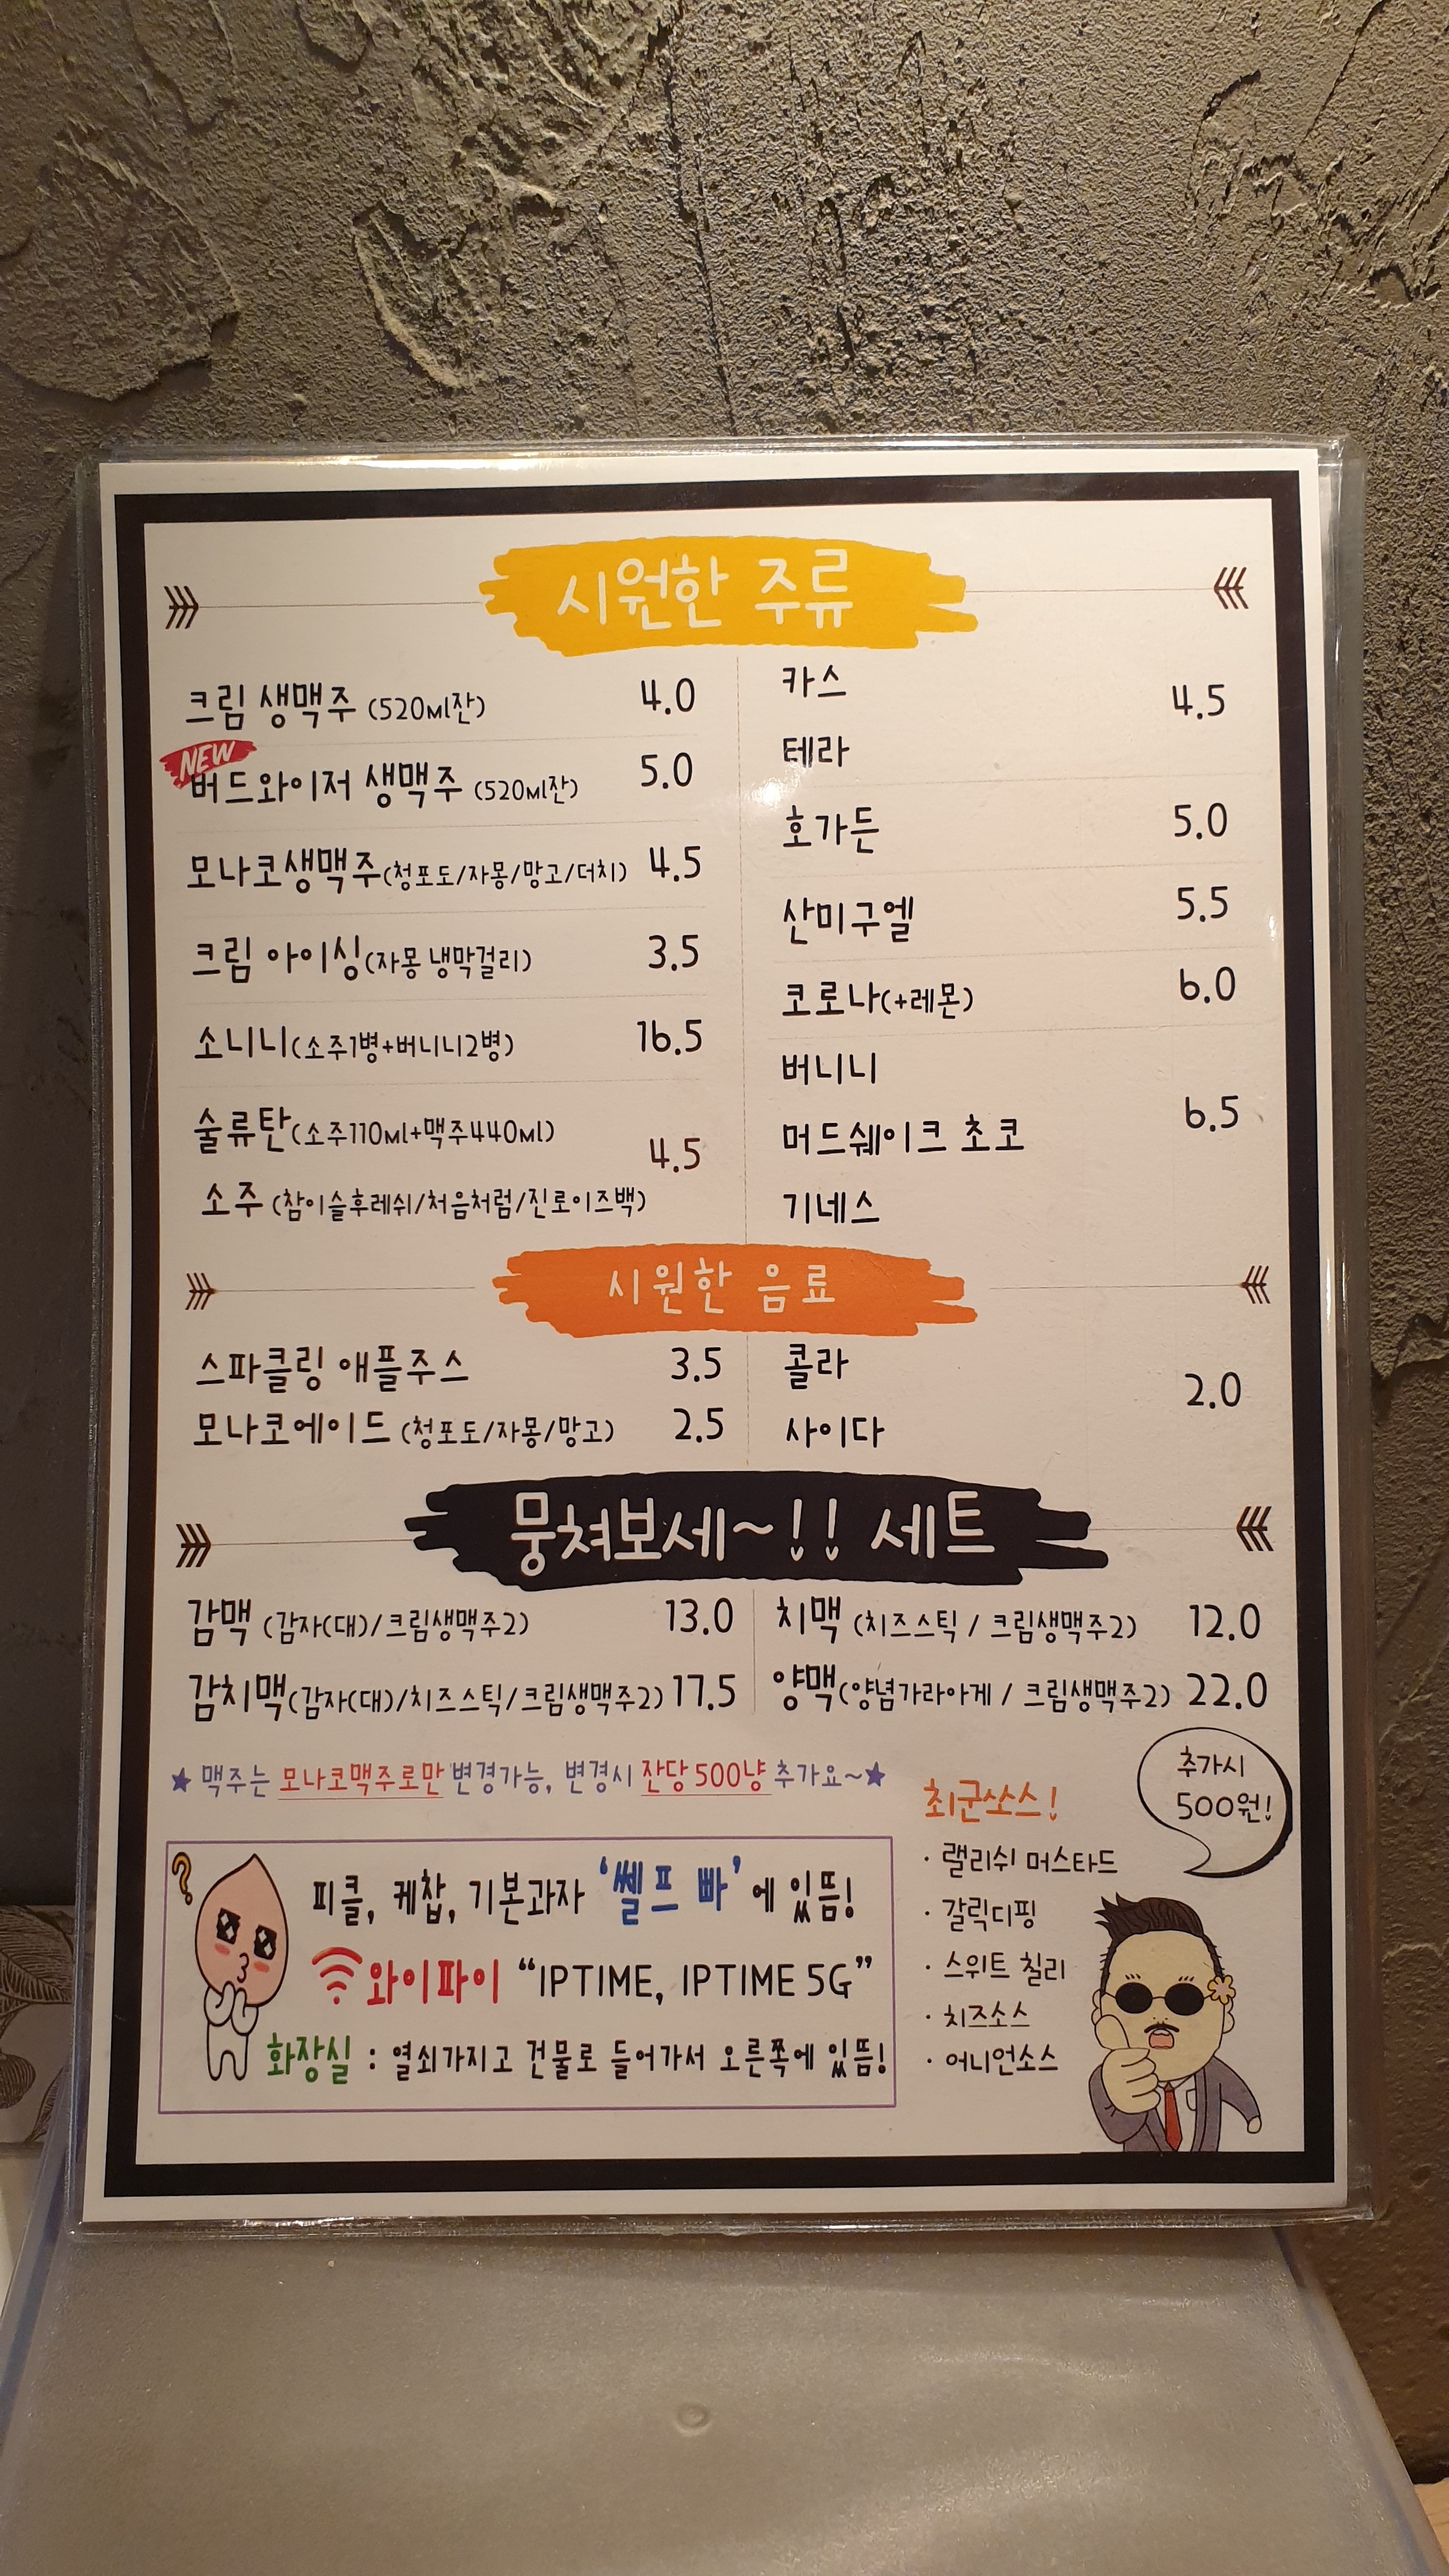 시원한 주류
크림 생맥주 (520ml잔) 4.0
NEW
버드와이저 생맥주 (520ml잔) 5.0
모나코생맥주(청포도/자몽/망고/더치) 4.5
크림 아이싱(자몽 냉막걸리) 3.5
소니니(소주1병+버니니2병) 16.5
술류탄(소주110ml+맥주440ml)
4.5
소주 (참이슬후레쉬/처음처럼/진로이즈백)
카스
4.5
테라
호가든 5.0
산미구엘 5.5
코로나(+레몬) 6.0
버니니
머드쉐이크 초코 6.5
기네스
시원한 음료
스파클링 애플주스 3.5
모나코에이드 (청포도/자몽/망고) 2.5
콜라
2.0
사이다
뭉쳐보세~!! 세트
감맥 (감자(대)/크림생맥주2) 13.0
감치맥(감자(대)/치즈스틱/크림생맥주2) 17.5
치맥 (치즈스틱 / 크림생맥주2) 12.0
양맥(양념가라아게 / 크림생맥주2) 22.0
★ 맥주는 모나코맥주로만 변경가능, 변경시 잔당 500냥 추가요~★
?
피클, 케찹, 기본과자 '쎌프 빠'에 있뜸!
와이파이 “IPTIME, IPTIME 5G”
화장실 : 열쇠가지고 건물로 들어가서 오른쪽에 있뜸!
최군쏘스!
추가시
500원!
· 랠리쉬 머스타드
· 갈릭디핑
· 스위트 칠리
· 치즈소스
· 어니언소스